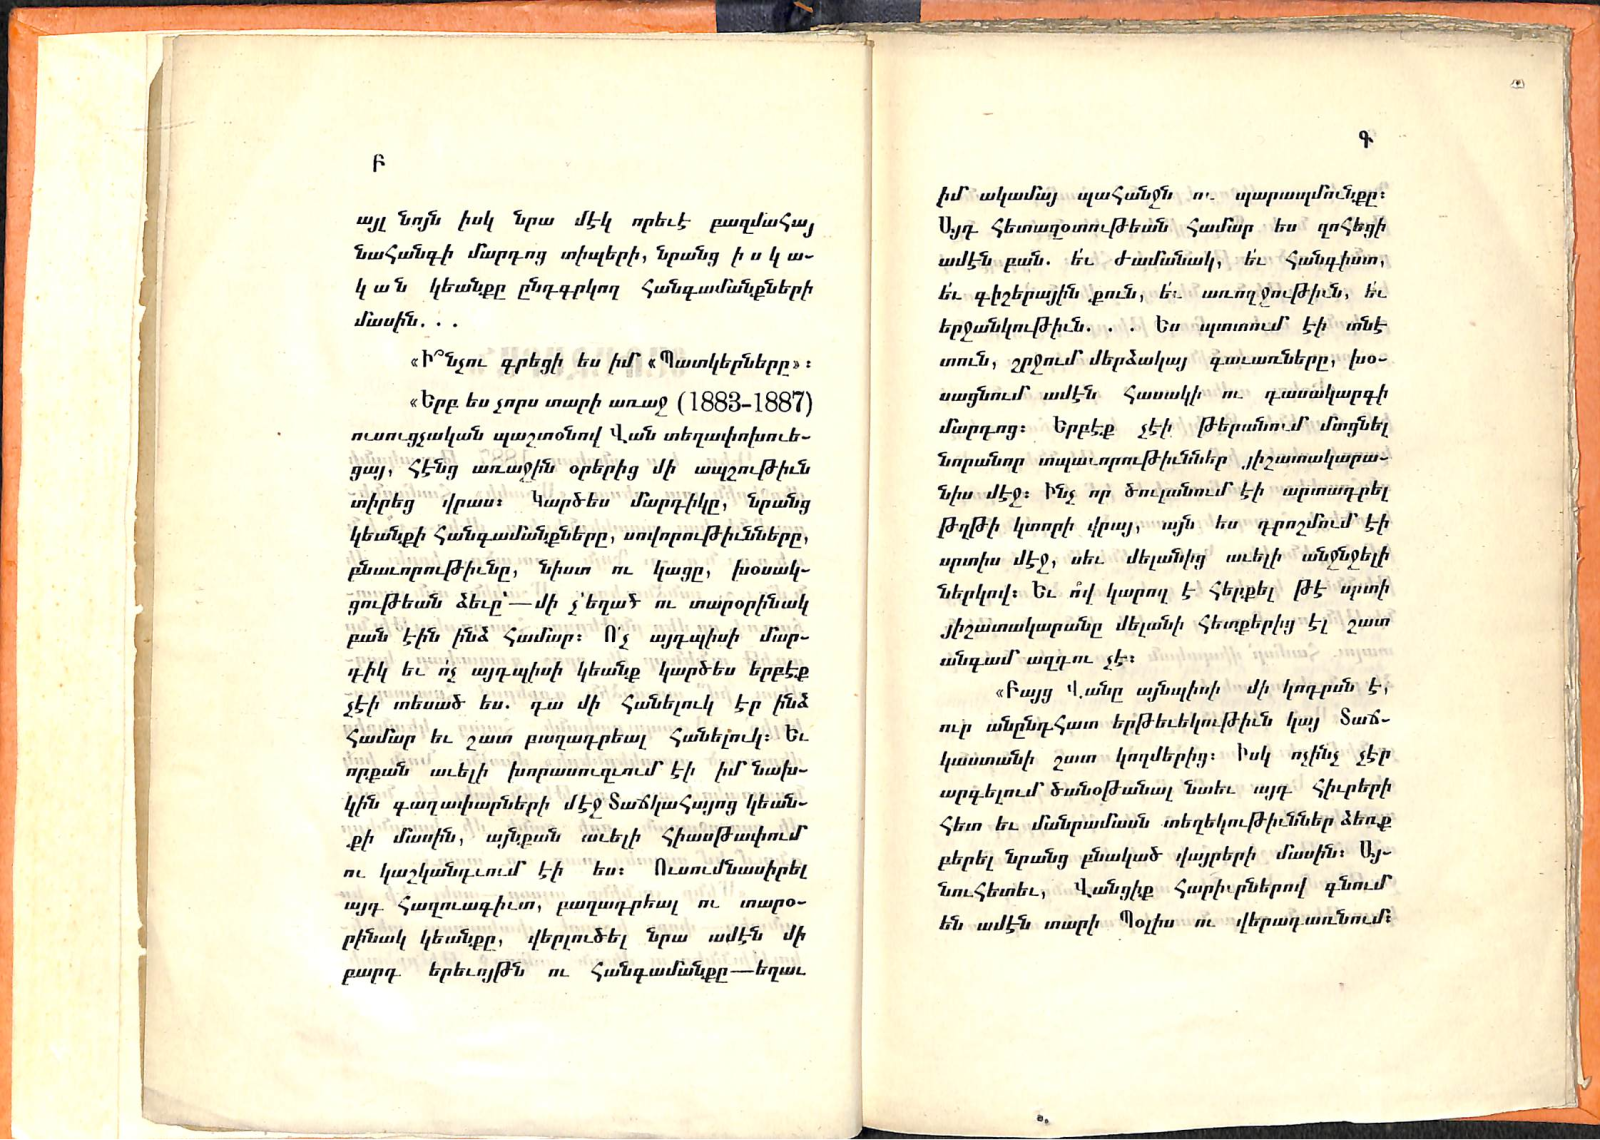 բ
այլ նոյն իսկ նրա մէկ որեւէ բազմահայ
նահանգի մարդոց տիպերի, նրանց ի ս կ ա-
կ ա ն կեանքը ընդգրկող հանգամանքների
մասին. . .
«Ի՞նչու գրեցի ես իմ «Պատկերները»:
«Երբ ես չորս տարի առաջ (1883-1887)
ուսուցչական պաշտօնով Վան տեղափոխուե-
ցայ, հէնց առաջին օրերից մի ապշութիւն
տիրեց վրաս: Կարծես մարդիկը, նրանց
կեանքի հանգամանքները, սովորութիւնները,
բնաւորութիւնը, նիստ ու կացը, խօսակ-
ցութեան ձեւը՝—մի չ՚եղած ու տարօրինակ
բան էին ինձ համար: Ո՛չ այդպիսի մար-
դիկ եւ ո՛չ այդպիսի կեանք կարծես երբէք
չէի տեսած ես. դա մի հանելուկ էր ինձ
համար եւ շատ բաղադրեալ հանելուկ: Եւ
որքան աւելի խորասուզւում էի իմ նախ-
կին գաղափարների մէջ Տաճկահայոց կեան-
քի մասին, այնքան աւելի հիասթափում
ու կաշկանդւում էի ես: Ուսումնասիրել
այդ հաղուագիւտ, բաղադրեալ ու տարօ-
րինակ կեանքը, վերլուծել նրա ամէն մի
բարդ երեւոյթն ու հանգամանքը—եղաւ
գ
իմ ակամայ պահանջն ու պարապմունքը:
Այդ հետազօտութեան համար ես զոհեցի
ամէն բան. ե՛ւ ժամանակ, ե՛ւ հանգիստ,
ե՛ւ գիշերային քուն, ե՛ւ առողջութիւն, ե՛ւ
երջանկութիւն. . . Ես պտտում էի տնէ
տուն, շրջում մերձակայ գաւառները, խօ-
սացնում ամէն հասակի ու դասակարգի
մարդոց: Երբէք չէի թերանում մտցնել
նորանոր տպաւորութիւններ յիշատակարա-
նիս մէջ: Ինչ որ ծուլանում էի արտադրել
թղթի կտորի վրայ, այն ես դրոշմում էի
սրտիս մէջ, սեւ մելանից աւելի անջնջելի
ներկով: Եւ ո՞վ կարող է հերքել թէ սրտի
յիշատակարանը մելանի հետքերից էլ շատ
անգամ ազդու չէ:
«Բայց Վանը այնպիսի մի կոդրոն է,
ուր անընդհատ երթեւեկութիւն կայ Տաճ-
կաստանի շատ կողմերից: Իսկ ոչինչ չէր
արգելում ծանօթանալ նաեւ այդ հիւրերի
հետ եւ մանրամասն տեղեկութիւններ ձեռք
բերել նրանց բնակած վայրերի մասին: Այ-
նուհետեւ, Վանցիք հարիւրներով գնում
են ամէն տարի Պօլիս ու վերադառնում: